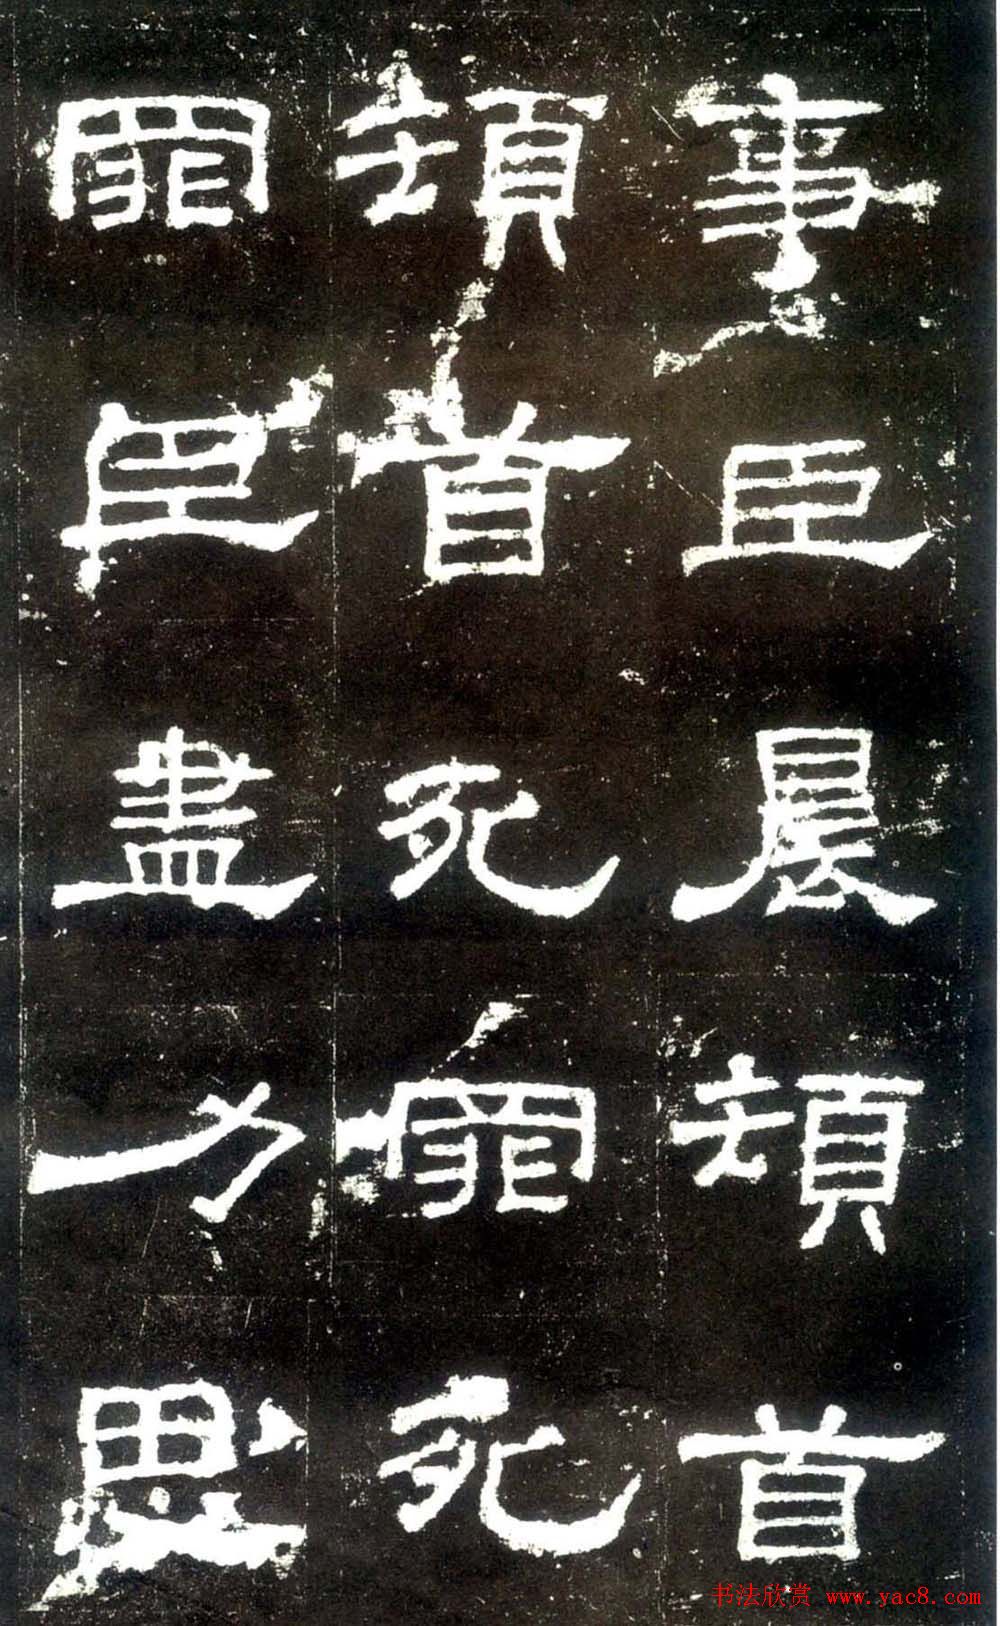 事臣晨頓首
頓首死罪死
罪臣盡力思
书法欣赏 www.yac8.com